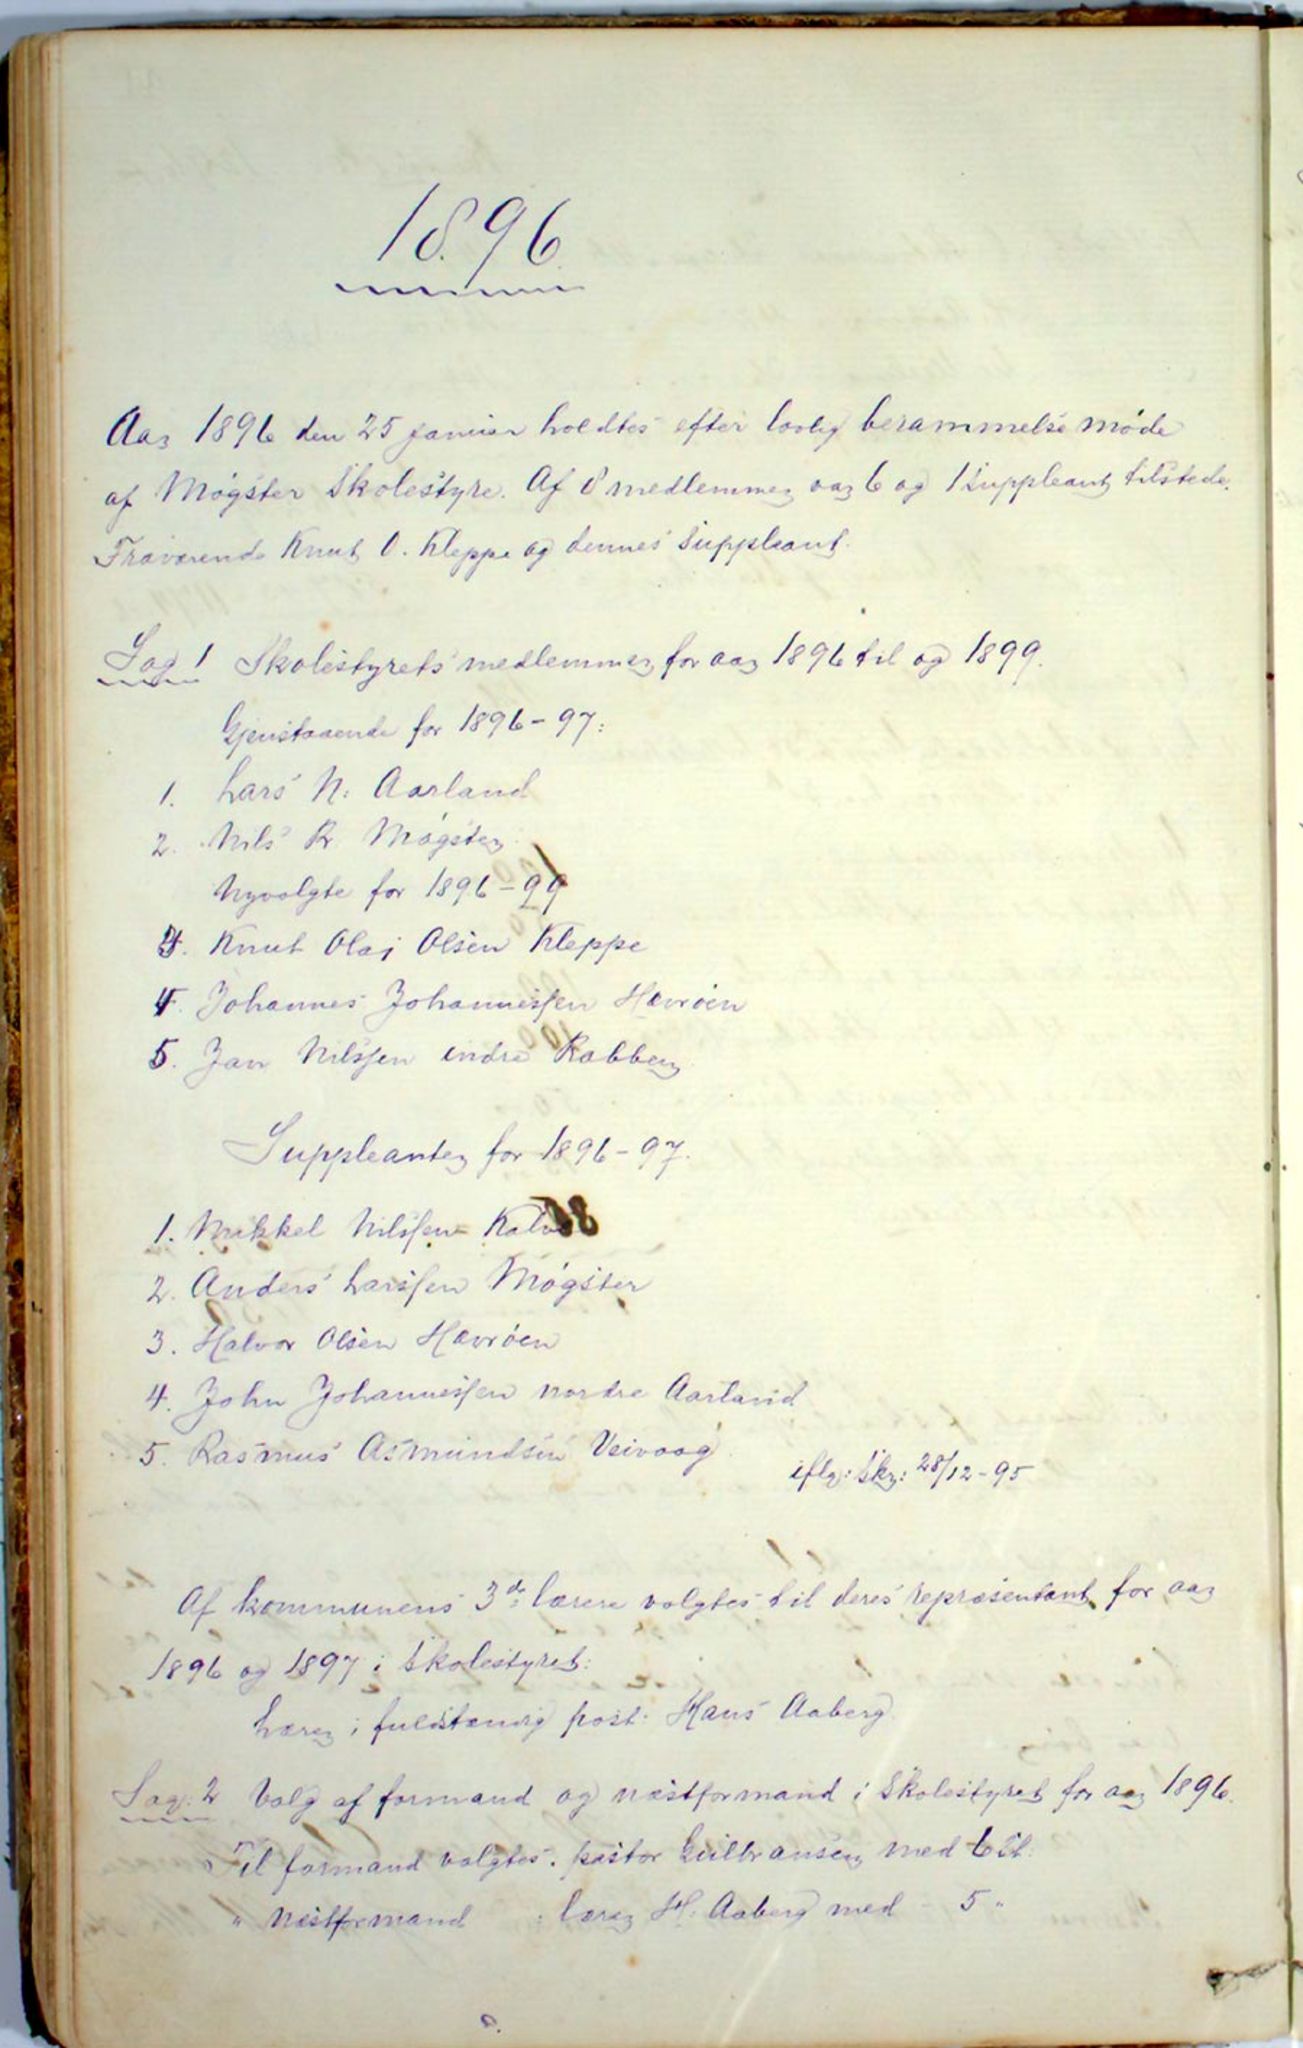 1896.
Aar 1896 den 25 januar holdtes efter lovlig berammelse møde
af Møgster Skolestyre. Af 8 medlemmer var 6 og 1 suppleant tilstede.
Fraværende Knut O. Kleppe og dennes suppleant.
Sag 1 Skolestyrets medlemmer for aar 1896 til og 1899.
Gjenstaaende for 1896-97:
1. Lars N. Aarland
2. Nils R. Møgster
Nyvalgte for 1896-99
3. Knut Olaj Olsen Kleppe
4. Johannes Johannessen Hævrøen
5. Jan Nilssen indre Rabben
Suppleanter for 1896-97.
1. Mikkel Nilssen
2. Anders Larssen Møgster
3. Halvor Olsen Hævrøen
4. John Johannessen nordre Aarland
5. Rasmus Asmundsen Veivaag
iflg: Skr: 28/12-95
Af kommunens 3de lærere valgtes til deres repræsentant for aar
1896 og 1897 i Skolestyret:
Lærer i fuldstændig post: Hans Aaberg
Sag: 2 Valg af formand og næstformand i Skolestyret for aar 1896.
Til formand valgtes: pastor Guilbransen med 6 st.
" næstformand : lærer H. Aaberg med - 5 "